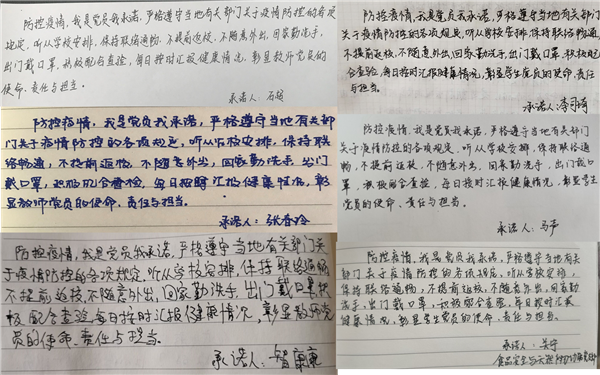 防控疫情，我是党员我承诺，严格遵守当地有关部门关于疫情防控的各项
规定，听从学校安排，保持联络通畅，不提前返校，不随意外出，回家勤洗手，
出门戴口罩，积极配合查验，每日按时汇报健康情况，彰显教师党员的
使命、责任与担当。
承诺人：石越
防控疫情，我是党员我承诺，严格遵守当地有关部
门关于疫情防控的各项规定，听从学校安排，保持联
络畅通，不提前返校，不随意外出，回家勤洗手，出门
戴口罩，积极配合查验，每日按时汇报健康情况，彰
显教师党员的使命、责任与担当。
承诺人：张香玲
防控疫情，我是党员我承诺，严格遵守当地有关部门关
于疫情防控的各项规定，听从学校安排，保持联络通畅
不提前返校，不随意外出，回家勤洗手，出门戴口罩，积
极配合查验，每日按时汇报健康情况，彰显教师党
员的使命、责任与担当。
承诺人：智康康
防控疫情，我是党员我承诺，严格遵守当地有关部门
关于疫情防控的各项规定，听从学校安排，保持联络通畅，
不提前返校，不随意外出，回家勤洗手，出门戴口罩，积极配
合查验，每日按时汇报健康情况，彰显学生党员的使命、责任
与担当。
承诺人：李司琦
防控疫情，我是党员我承诺，严格遵守当地有关部门
关于疫情防控的各项规定，听从学校安排，保持联络通
畅，不提前返校，不随意外出，回家勤洗手，出门戴口
罩，积极配合查验，每日按时汇报健康情况，彰显学生
党员的使命、责任与担当。
承诺人：马声
防控疫情，我是党员我承诺，严格遵守当地有关
部门关于疫情防控的各项规定，听从学校安排，
保持联络通畅，不提前返校，不随意外出，回家勤
洗手，出门戴口罩，积极配合查验，每日按时汇报
健康情况，彰显学生党员的使命、责任与担当。
承诺人：关宁
食品安全与天然